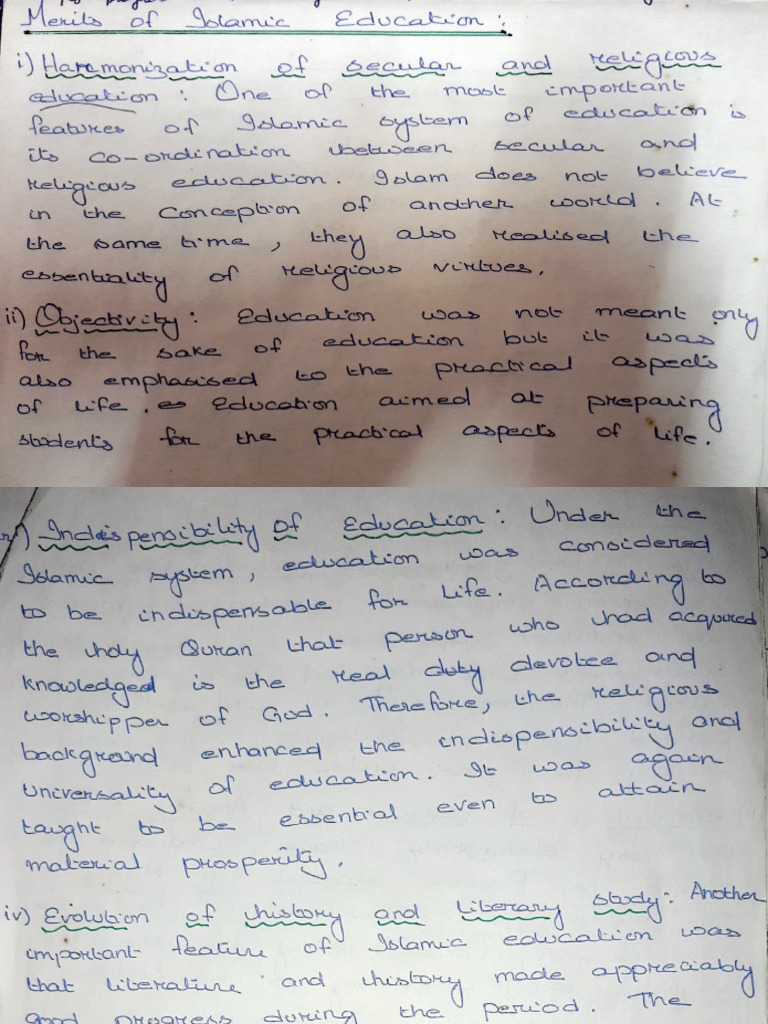 Merits of Islamic Education :
i) Haramonization of secular and religious
education : One of the most important
features of Islamic system of education is
its co-ordination between secular and
religious education. Islam does not believe
in the conception of another world. At
the same time, they also realised the
essentiality of religious virtues.
ii) Objectivity : Education was not meant only
for the sake of education but it was
also emphasised to the practical aspects
of life. Education aimed at preparing
students for the practical aspects of life.
Indispensibility of Education : Under the
Islamic system, education was considered
to be indispensable for life. According to
the holy Quran that person who had acquired
knowledged is the real duty devotee and
worshipper of God. Therefore, the religious
background enhanced the indispensibility and
universality of education. It was again
taught to be essential even to attain
material prosperity.
iv) Evolution of history and literary study : Another
important feature of Islamic education was
that literature and history made appreciably
good progress during the period. The